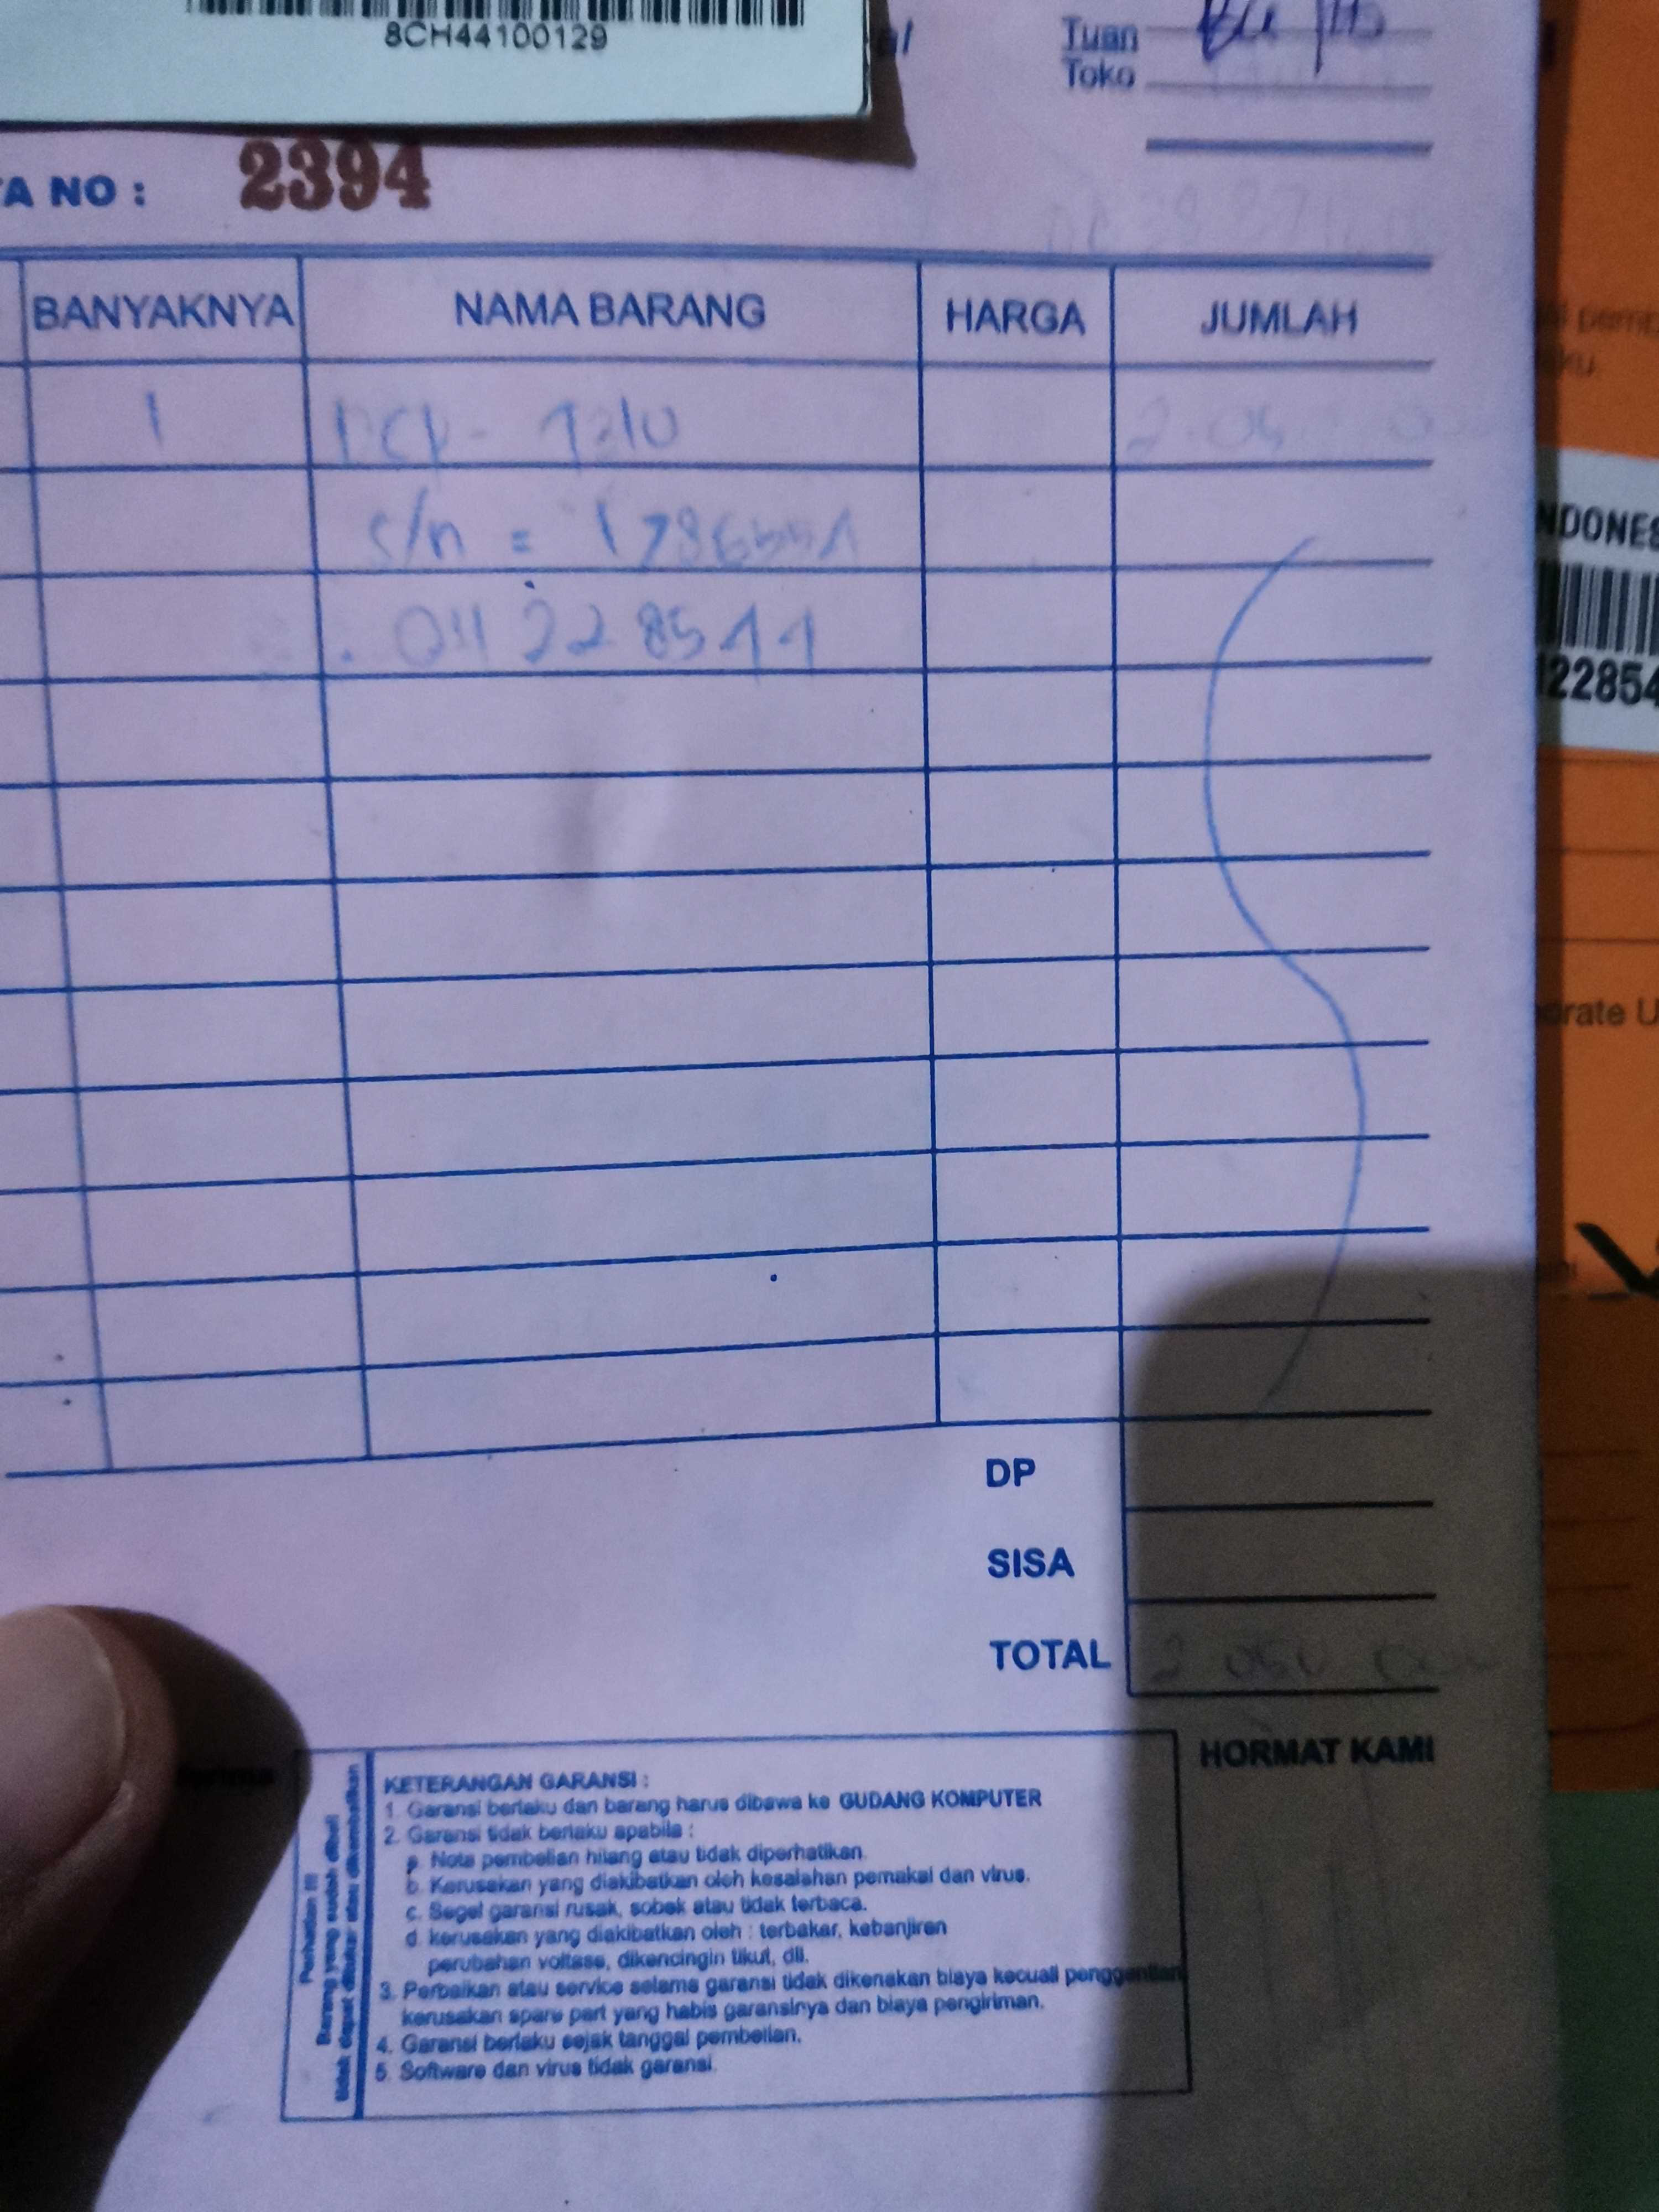 8CH44100129
Tuan
Toko
TA NO : 2394
BANYAKNYA NAMA BARANG HARGA JUMLAH
1
s/n =
NDONES
122854
orate U
DP
SISA
TOTAL
HORMAT KAMI
Perhatian !!!
Barang yang sudah dibeli
tidak dapat ditukar atau dikembalikan
KETERANGAN GARANSI :
1. Garansi berlaku dan barang harus dibawa ke GUDANG KOMPUTER
2. Garansi tidak berlaku apabila :
a. Nota pembelian hilang atau tidak diperhatikan.
b. Kerusakan yang diakibatkan oleh kesalahan pemakai dan virus.
c. Segel garansi rusak, sobek atau tidak terbaca.
d. kerusakan yang diakibatkan oleh : terbakar, kebanjiran
perubahan voltase, dikencingin tikut, dll.
3. Perbaikan atau service selama garansi tidak dikenakan biaya kecuali penggantian
kerusakan spare part yang habis garansinya dan biaya pengiriman.
4. Garansi berlaku sejak tanggal pembelian.
5. Software dan virus tidak garansi.